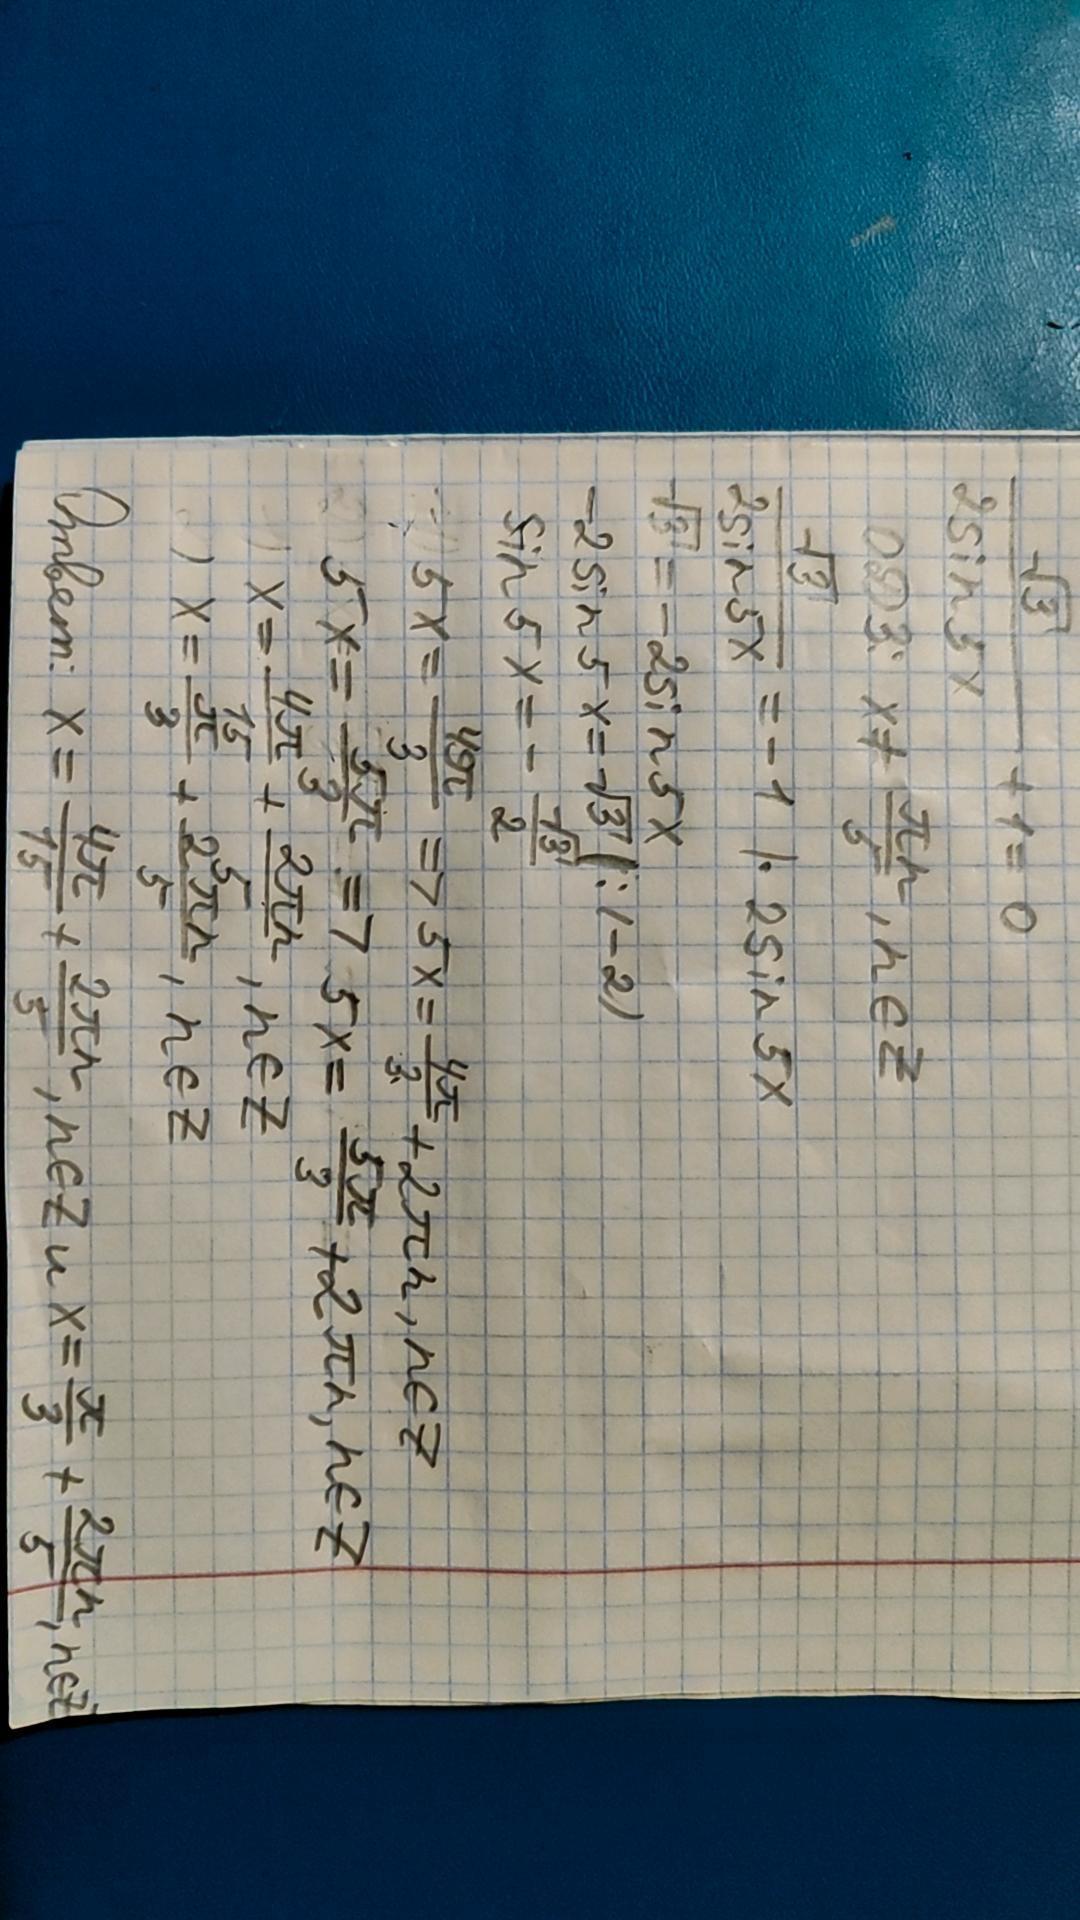 √3/2sin5x + 1 = 0
ОДЗ: x ≠ πn/5, n∈Z
√3/2sin5x = -1 |· 2sin5x
√3 = -2sin5x
-2sin5x = √3 |:(-2)
sin5x = - √3/2
1) 5x = 4π/3 => 5x = 4π/3 + 2πn, n∈Z
2) 5x = 5π/3 => 5x = 5π/3 + 2πn, n∈Z
) x = 4π/15 + 2πn/5, n∈Z
) x = π/3 + 2πn/5, n∈Z
Ответ: x = 4π/15 + 2πn/5, n∈Z и x = π/3 + 2πn/5, n∈Z